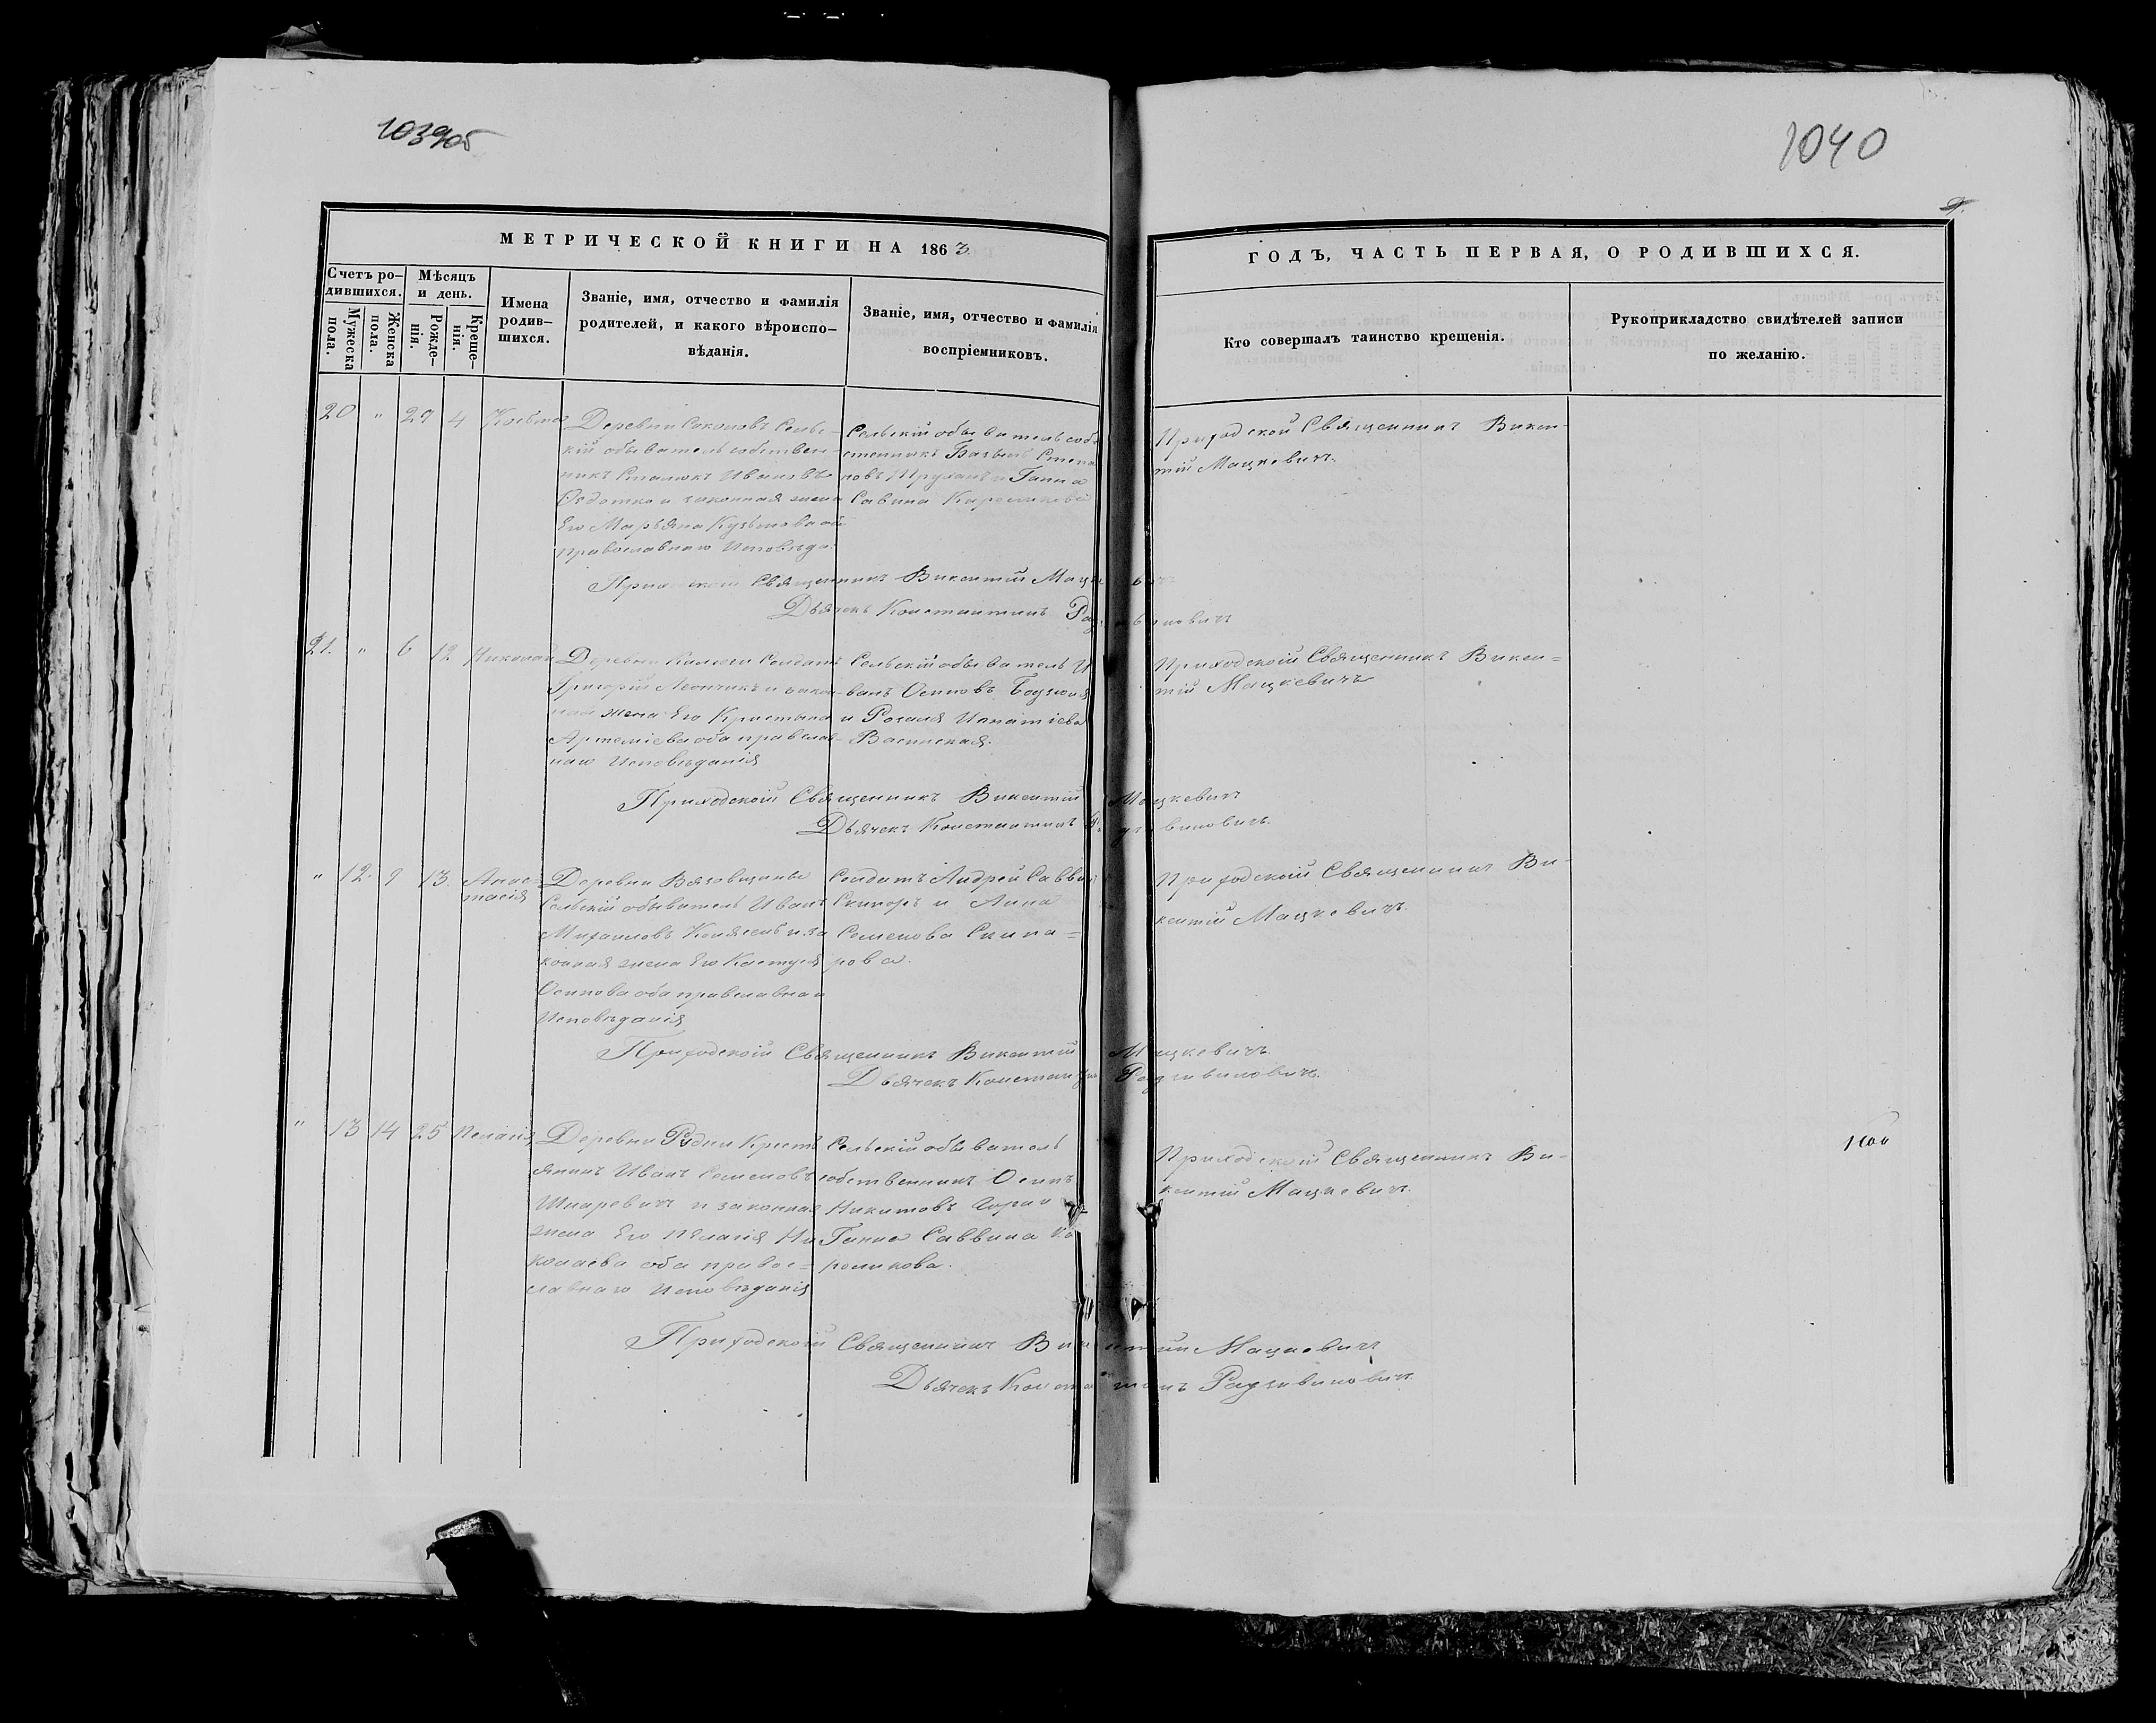 1039об
1040
МЕТРИЧЕСКОЙ КНИГИ НА 1863
ГОДЪ, ЧАСТЬ ПЕРВАЯ, О РОДИВШИХСЯ.
Счетъ ро-
дившихся.
Мужеска
пола.
Женска
пола.
Мѣсяцъ
и день.
Рожде-
нія.
Креще-
нія.
Имена
родив-
шихся.
Званіе, имя, отчество и фамилія
родителей, и какого вѣроиспо-
вѣданія.
Званіе, имя, отчество и фамилія
воспріемниковъ.
Кто совершалъ таинство крещенія.
Рукоприкладство свидѣтелей записи
по желанію.
20 " 29 4
Деревни Соколовъ Сель-
кій обыватель собствен-
никъ Иановъ
и законная жена
Его Марьяна Кузьмова оба
православнаго Исповѣда.
Сельскій обыватель соб-
ственникъ Базыль Степа
новъ и Ганна
Савина
Приходской Священникъ Викен-
тій Мацкевичъ.
Приходской Священникъ Викентій Мацкевичъ
Дьячекъ Константинъ Радзивиновичъ
21. " 6 12 Николай
Деревни Солдатъ
Григорій и закон-
ная жена Его Кристына
Артеміева оба православ-
наго Исповѣданія
Сельскій обыватель И
ванъ Осиповъ
и Розалія Игнатіева
Приходской Священникъ Викен=
тій Мацкевичъ
Приходской Священникъ Викентій Мацкевичъ
Дьячекъ Константинъ Радзивиновичъ.
" 12. 9 13. Анас-
тасія
Деревни Вязовщины
Сельскій обыватель Иванъ
Михаиловъ и за
конная жена Его Кастуся
Осипова оба православнаго
Исповѣданія
Солдатъ Андрей Саввинъ
Скипоръ и Анна
Семенова Скипа=
рова.
Приходской Священникъ Ви-
кентій Мацкевичъ.
Приходской Священникъ Викентій Мацкевичъ.
Дьячекъ Константинъ Радзивиновичъ.
" 13 14 25 Пелагія
Деревни Рудни Кресть
янинъ Иванъ Семеновъ
Шпаревичъ и законная
жена Его Пелагія Ни
колаева оба правос=
лавнаго Исповѣданія
Сельскій обыватель
собственникъ Осипъ
Никитовъ
Ганна Саввина Ка
роликова.
Приходской Священникъ Ви=
кентій Мацкевичъ.
Приходской Священникъ Викентій Мацкевичъ
Дьячекъ Константинъ Радзивиновичъ